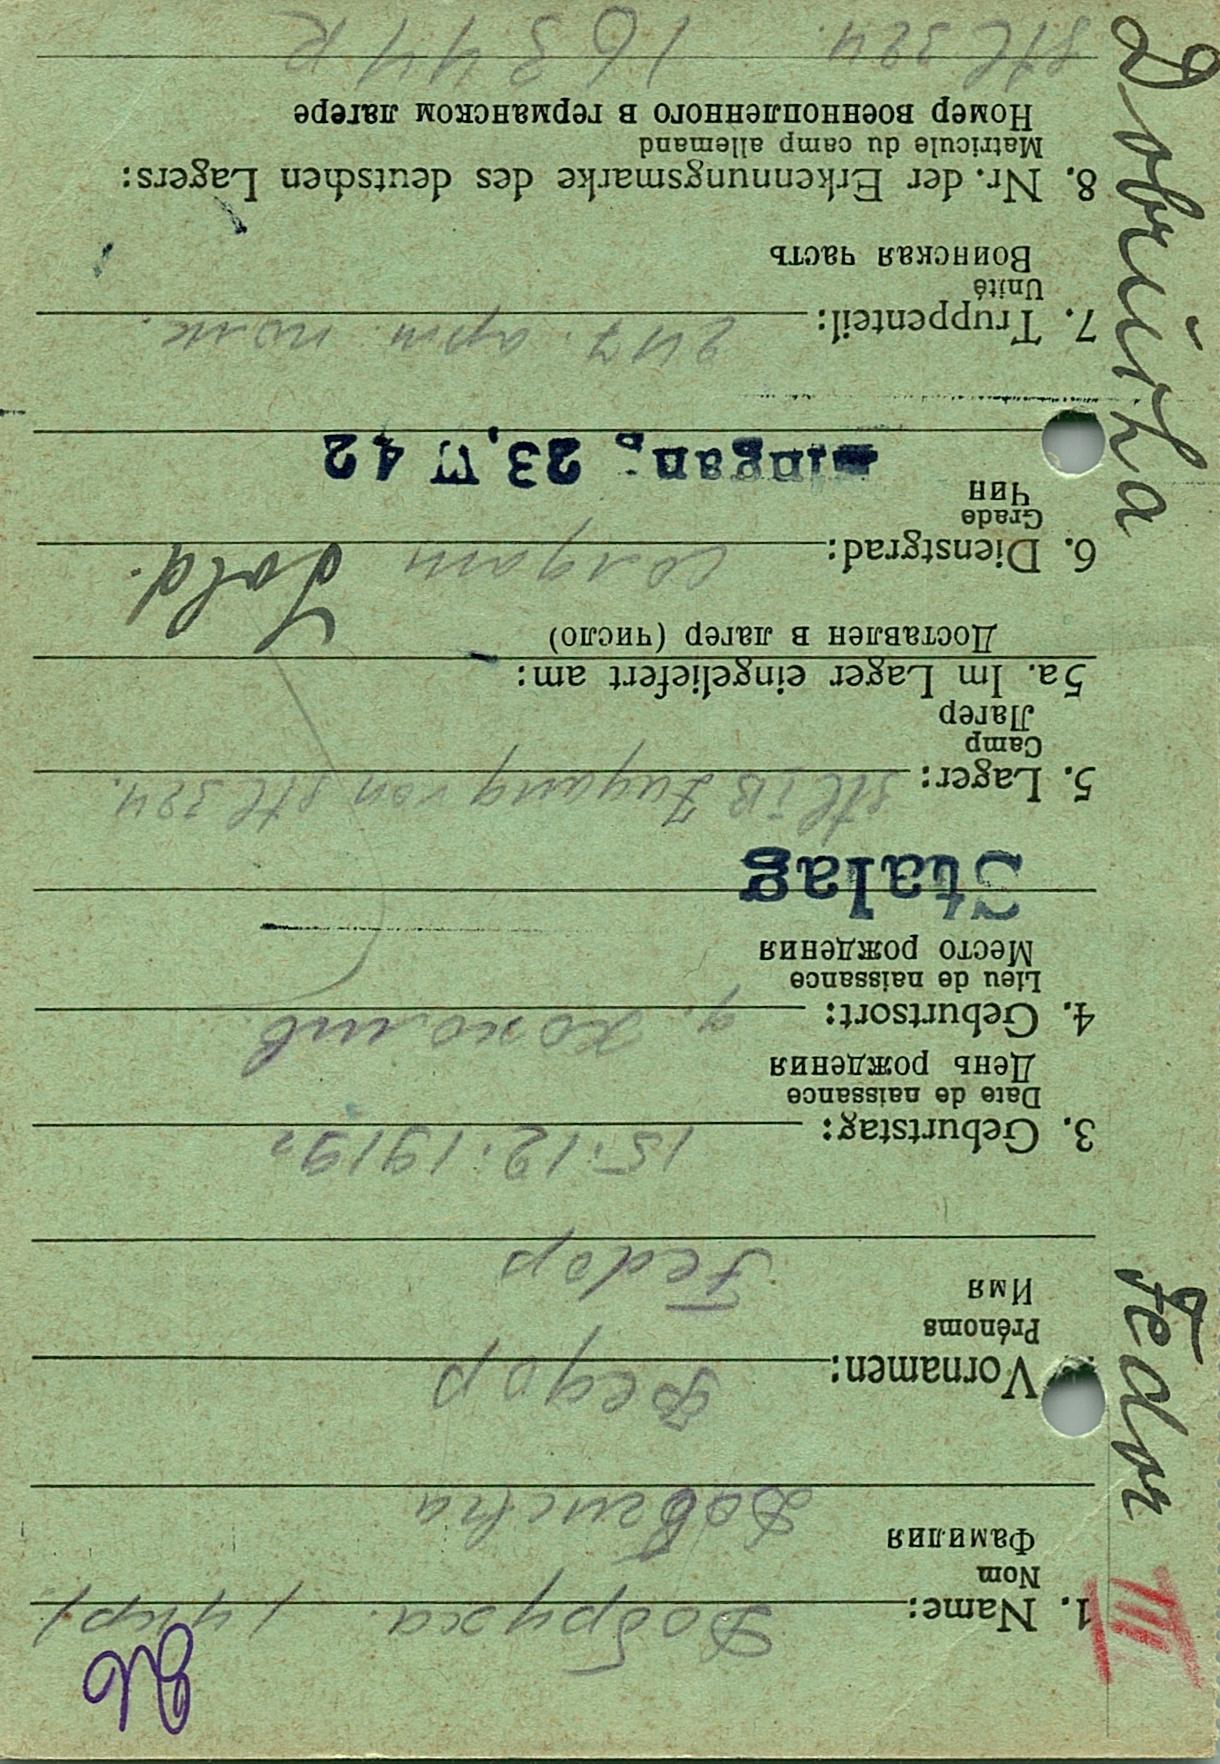 1. Name: Добруха. /укр/.
Nom
Фамилия
Vornamen: Федор
Prénoms
Имя
Fedor
3. Geburtstag: 15.12.1919г
Date de naissance
День рождения
4. Geburtsort:
Lieu de naissance
Место рождения
Stalag
5. Lager: Stl IB Zugang von Stl 324.
Camp
Лагер
5a. Im Lager eingeliefert am:
Доставлен в лагер (число)
6. Dienstgrad: солдат Sold.
Grade
Чин
23. 42
7. Truppenteil: 247. арт. полк.
Unité
Воинская часть
8. Nr. der Erkennungsmarke des deutschen Lagers:
Matricule du camp allemand
Номер военнопленного в германском лагере
Stl 324. 16344 R
III Fedor Dobrucha